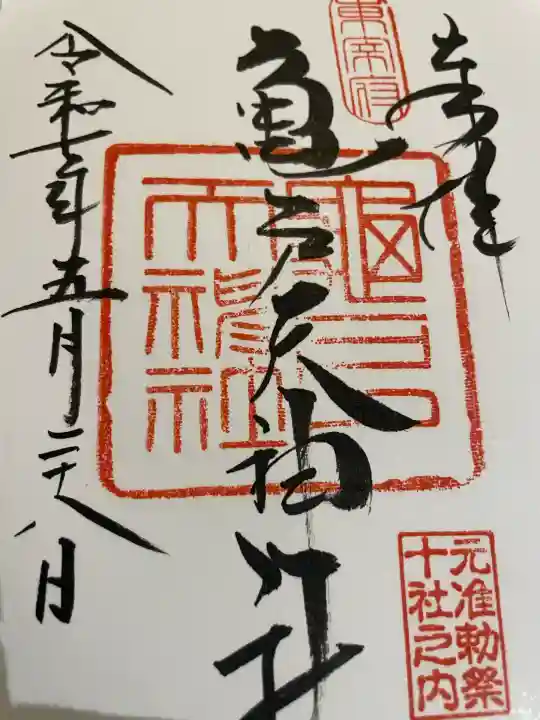 奉拝
東宰府
亀戸天神社
亀戸天神社
元准勅祭
十社之内
令和七年五月二十八日